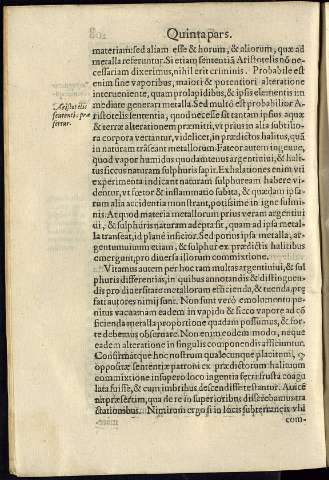 Quinta pars.
materiam: sed aliam esse & horum, & aliorum, quæ ad
metalla referuntur. Si etiam sententiã Aristotelis nõ ne-
cessariam dixerimus, nihil erit criminis. Probabile est
enim sine vaporibus, maiori & potentiori alteratione
interueniente, quam prolapidibus, & ipsis elementis im
mediate generari metalla. Sed multò est probabilior A-
ristotelis sententia, quod necesse sit tantam ipsius aquæ
Aristotelis
sententia præ
fertur.
& terræ alterationem præmitti, vt prius in alia subtilio-
ra corpora vertantur, videlicet, in prædictos halitus, quã
in naturam trãseant metallorum. Fateor autem ingenue,
quod vapor humidus quodammodo argentum viui, & hali-
tus siccus naturam sulphuris sapit. Exhalationes enim vti
experimenta indicant naturam sulphuream habere vi-
dentur, vt fœtor & inflammatio subita, & quædam ipsa-
rum alia accidentia monstrant, potissime in igne fulmi-
nis. At quod materia metallorum prius veram argentivi
ui, & sulphuris naturam adepta sit, quam ad ipsa metal-
la transeat, id plane inficior. Sed potius ipsa metalla, ar-
gentumuiuum etiam, & sulphur ex prædictis halitibus
emergunt, pro diuersa illorum commixtione.
Vitamus autem per hoc tam multas argentiuiui, & sul
phuris differencias, in quibus annotandis & distinguen-
dis pro diuersitate metallorum efficienda, & tuenda præ
fati autores nimij sunt. Non sunt verò emolumento pe-
nitus vacuam eadem in vapido & sicco vapore ad cõ
ficienda metalla proportione quadam possimus, & for-
te debemus obseruare. Non enim eodem modo, neque
eadem alteratione in singulis componendis afficiuntur.
Confirmatque hoc nostrum qualecunque placitum,
oppositæ sententiæ patroni ex prædictorum halituum
commixtione in supero loco ingentia ferri frusta coagu
lata fuisse, & cum imbribus descendisse testantur. Auice
na præsertim, qua de re in superioribus disserebamus tra
ctationibus. Nimirum ergo si in locis subterraneis vbi
com-